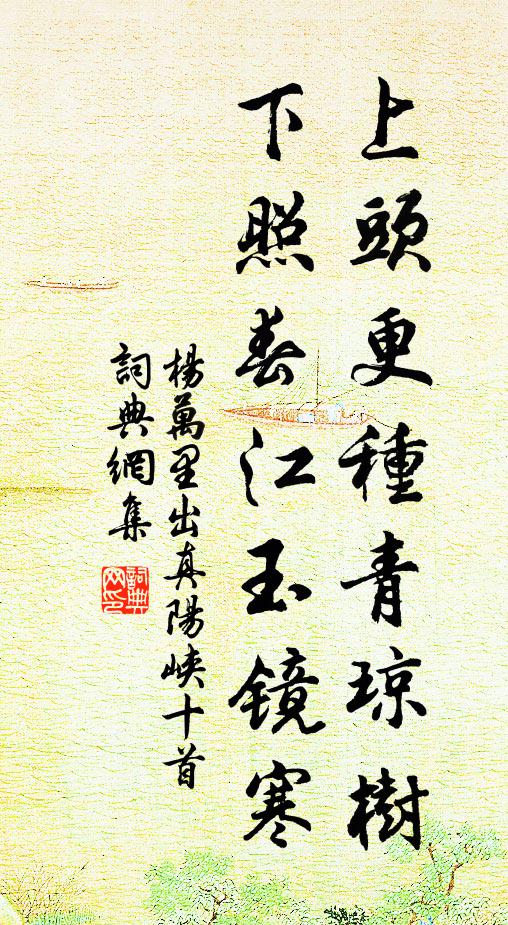 上頭更種青琼樹
下照春江玉镜寒
楊萬里出真陽峽十首
詞典網集
詞典
网印